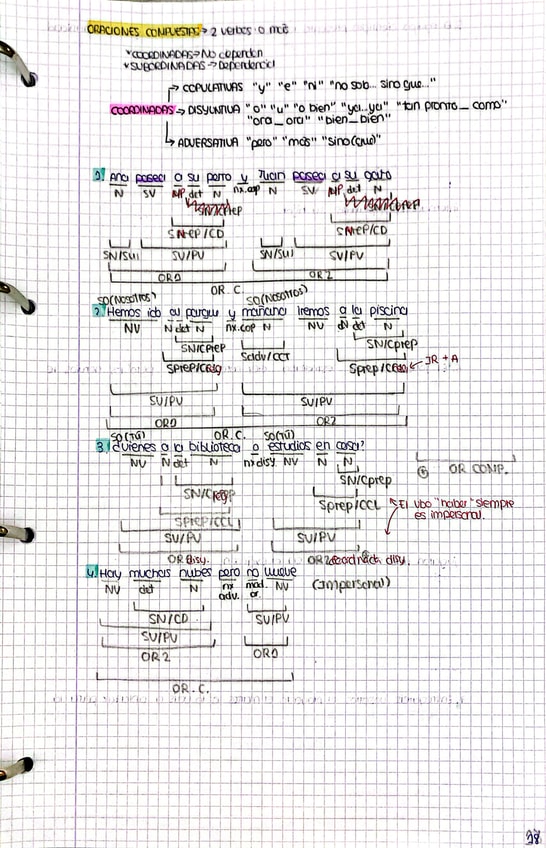 ORACIONES COMPUESTAS → 2 verbos o más
*COORDINADAS → No dependen
*SUBORDINADAS → Dependencia
COPULATIVAS "y" "e" "ni" "no sob... sino que..."
COORDINADAS → DISYUNTIVA "o" "u" "o bien" "ya...ya" "tan pronto_como"
"ora_ora" "bien_bien"
ADVERSATIVA "pero" "mas" "sino (que)"
1. Ana paseó a su perro y Juan paseó a su gato
N SV NP det N nx.cop N SV NP det N
SPREP/CD SPREP/CD
SN/SUJ SV/PV SN/SUJ SV/PV
OR1 OR2
OR. C.
SO(NOSOTROS) SO(NOSOTROS)
2. Hemos ido al parque y mañana iremos a la piscina
NV N det N nx.cop N NV N det N
SN/Cprep SN/Cprep
Sprep/CReg Sadv/CCT Sprep/CReg ← IR + A
SV/PV SV/PV
OR1 OR2
OR. C.
SO(TÚ) SO(TÚ)
3. ¿Vienes a la biblioteca o estudias en casa?
NV N det N nx disy NV N N
OR COMP.
SN/Cprep SN/Cprep
Sprep/CCL Sprep/CCL
El vbo "haber" siempre
es impersonal.
SV/PV SV/PV
OR1 disy. OR2 coordinada disy.
4. Hay muchas nubes pero no llueve
NV det N nx adv. mod. or. NV (Impersonal)
SN/CD SV/PV
SV/PV
OR2 OR1
OR. C.